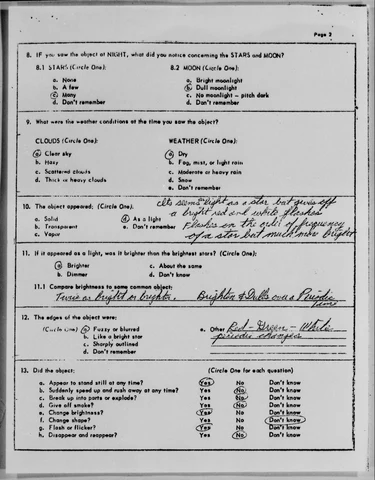 Page 3
8. IF you saw the object at NIGHT, what did you notice concerning the STARS and MOON?
8.1 STARS (Circle One): 8.2 MOON (Circle One):
a. None a. Bright moonlight
b. A few b. Dull moonlight
c. Many c. No moonlight – pitch dark
d. Don't remember d. Don't remember
9. What were the weather conditions at the time you saw the object?
CLOUDS (Circle One): WEATHER (Circle One):
a. Clear sky a. Dry
b. Hazy b. Fog, mist, or light rain
c. Scattered clouds c. Moderate or heavy rain
d. Thick or heavy clouds d. Snow
e. Don't remember
its seems light as a star but gives off
10. The object appeared: (Circle One): a bright red and white flashes
a. Solid d. As a light Flashes on the order of frequency
b. Transparent e. Don't remember of a star but much more bright
c. Vapor
11. If it appeared as a light, was it brighter than the brightest stars? (Circle One):
a. Brighter c. About the same
b. Dimmer d. Don't know
11.1 Compare brightness to some common object:
Twice as bright or brighter. Brightens & Dulls over a Periodic
time
12. The edges of the object were:
(Circle One) a. Fuzzy or blurred e. Other Red - Green - White
b. Like a bright star periodic changes
c. Sharply outlined
d. Don't remember
13. Did the object: (Circle One for each question)
a. Appear to stand still at any time? Yes No Don't know
b. Suddenly speed up and rush away at any time? Yes No Don't know
c. Break up into parts or explode? Yes No Don't know
d. Give off smoke? Yes No Don't know
e. Change brightness? Yes No Don't know
f. Change shape? Yes No Don't know
g. Flash or flicker? Yes No Don't know
h. Disappear and reappear? Yes No Don't know